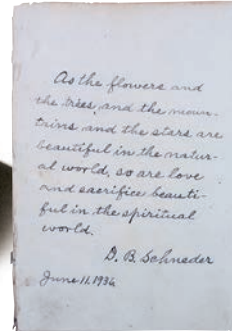 As the flowers and
the trees, and the moun-
tains and the stars are
beautiful in the natur-
al world, so are love
and sacrifice beauti-
ful in the spiritual
world.
D. B. Schneder
June 11. 1936